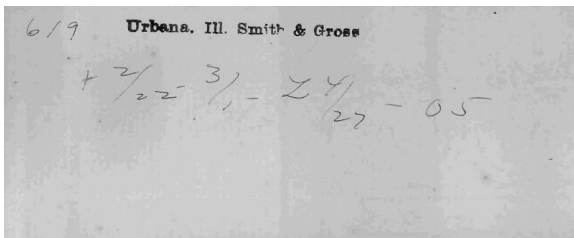 619 Urbana, Ill. Smith & Gross
+ 2/22 - 3/1 - L 4/27 - 05